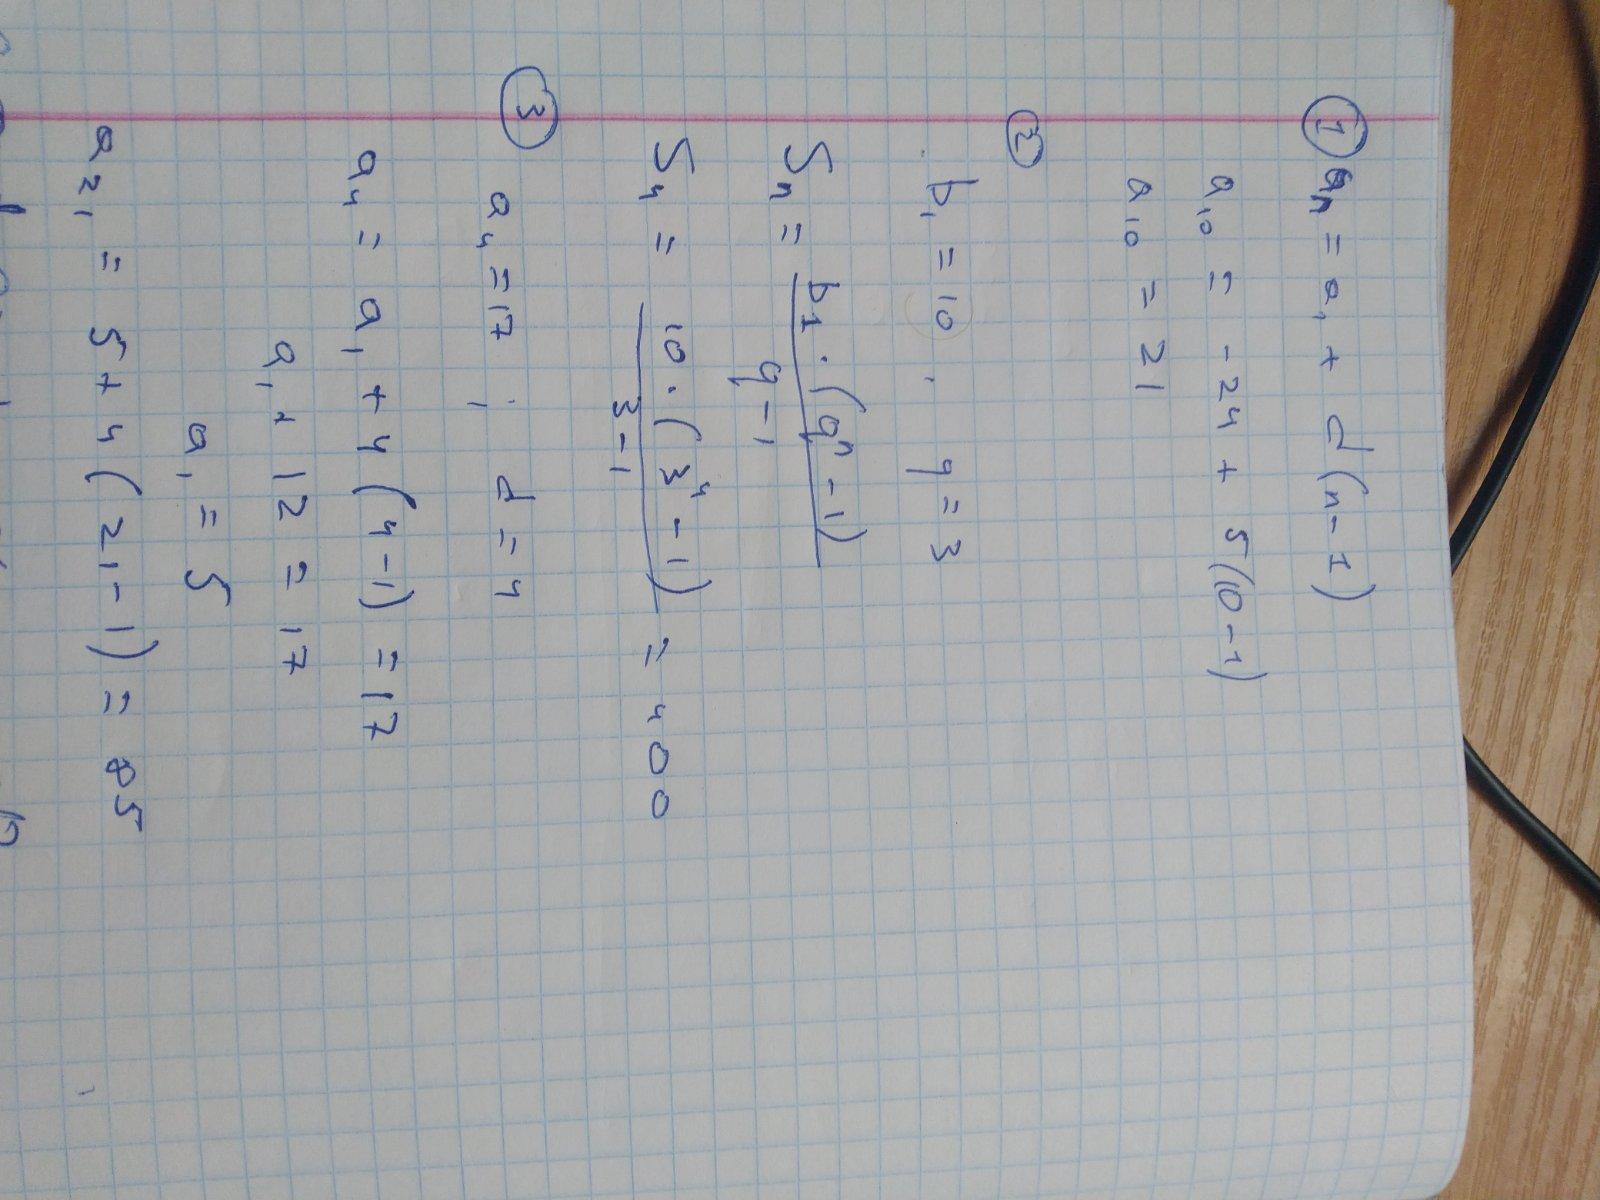 ① aₙ = a₁ + d(n-1)
a₁₀ = -24 + 5(10-1)
a₁₀ = 21
②
b₁ = 10 ; q = 3
Sₙ = b₁·(qⁿ-1) / q-1
S₄ = 10·(3⁴-1) / 3-1 = 400
③
a₄ = 17 ; d = 4
a₄ = a₁ + 4(4-1) = 17
a₁ + 12 = 17
a₁ = 5
a₂₁ = 5 + 4(21-1) = 85